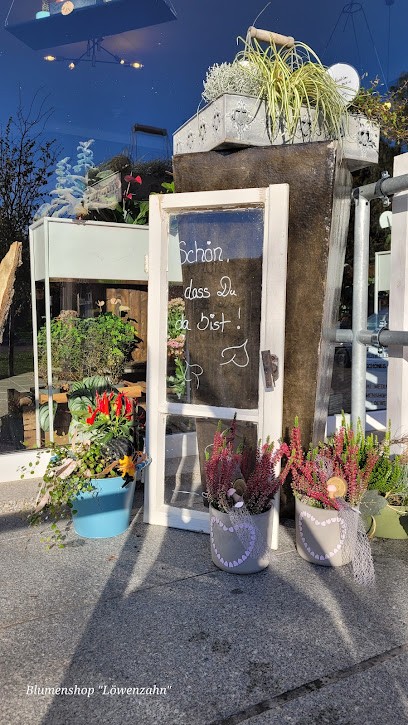 Schön,
dass Du
da bist!
Blumenshop "Löwenzahn"